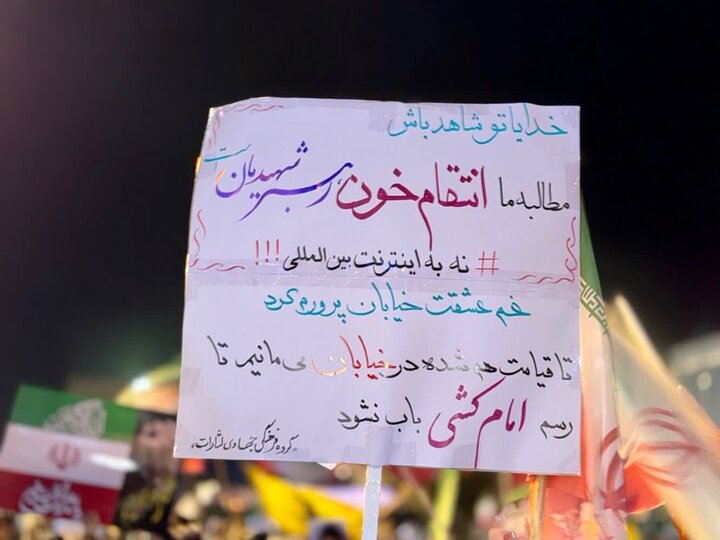 خدایا تو شاهد باش
مطالبه ما انتقام خون رهبر شهیدمان است
# نه به اینترنت بین المللی !!!
غم عشقت خیابان پرورم کرد
تا قیامت هم شده در خیابان می مانیم تا
رسم امام کشی باب نشود
"گروه فرهنگی جهادی لثارات"